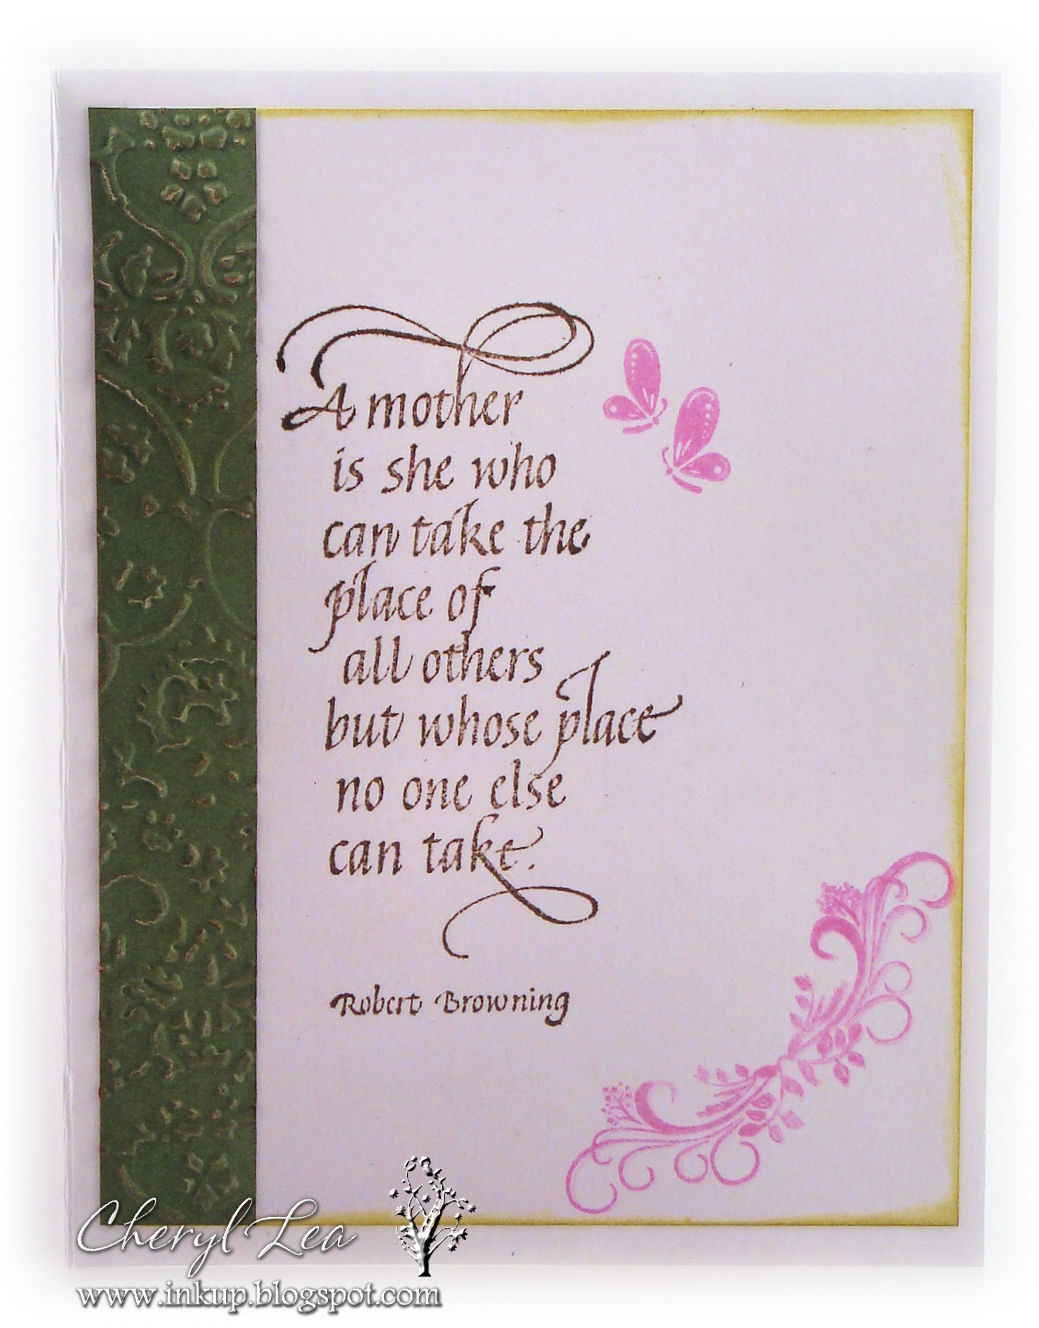 A mother
is she who
can take the
place of
all others
but whose place
no one else
can take.
Robert Browning
Cheryl Lea
www.inkup.blogspot.com